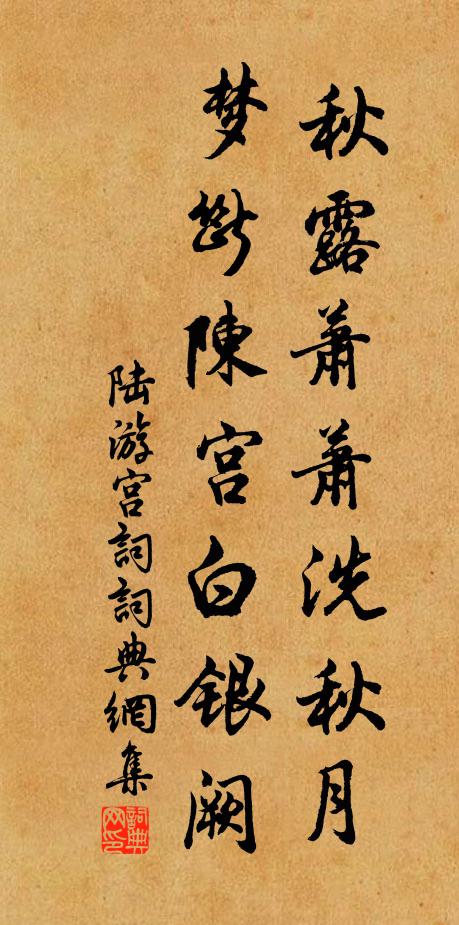 秋露蕭蕭洗秋月
梦断陳宫白銀阙
陆游宫詞詞典網集
詞典网印